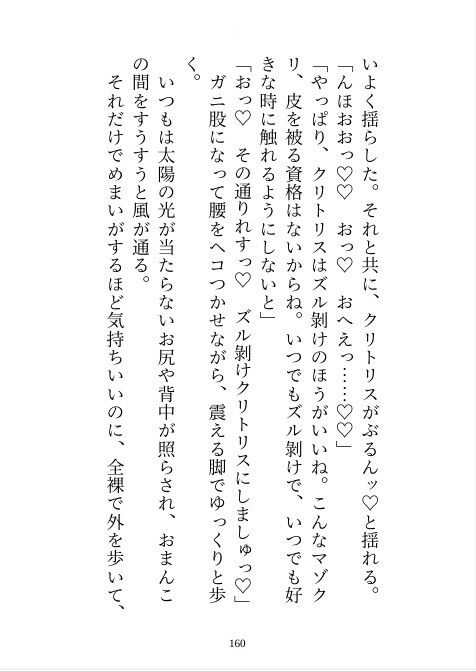 いよく揺らした。それと共に、クリトリスがぶるんッ♡と揺れる。
「んほおおっ♡♡　おっ♡　おへえっ……♡♡」
「やっぱり、クリトリスはズル剝けのほうがいいね。こんなマゾク
リ、皮を被る資格はないからね。いつでもズル剝けで、いつでも好
きな時に触れるようにしないと」
「おっ♡　その通りれすっ♡　ズル剝けクリトリスにしましゅっ♡」
　ガニ股になって腰をヘコつかせながら、震える脚でゆっくりと歩
く。
　いつもは太陽の光が当たらないお尻や背中が照らされ、おまんこ
の間をすうすうと風が通る。
　それだけでめまいがするほど気持ちいいのに、全裸で外を歩いて、
160